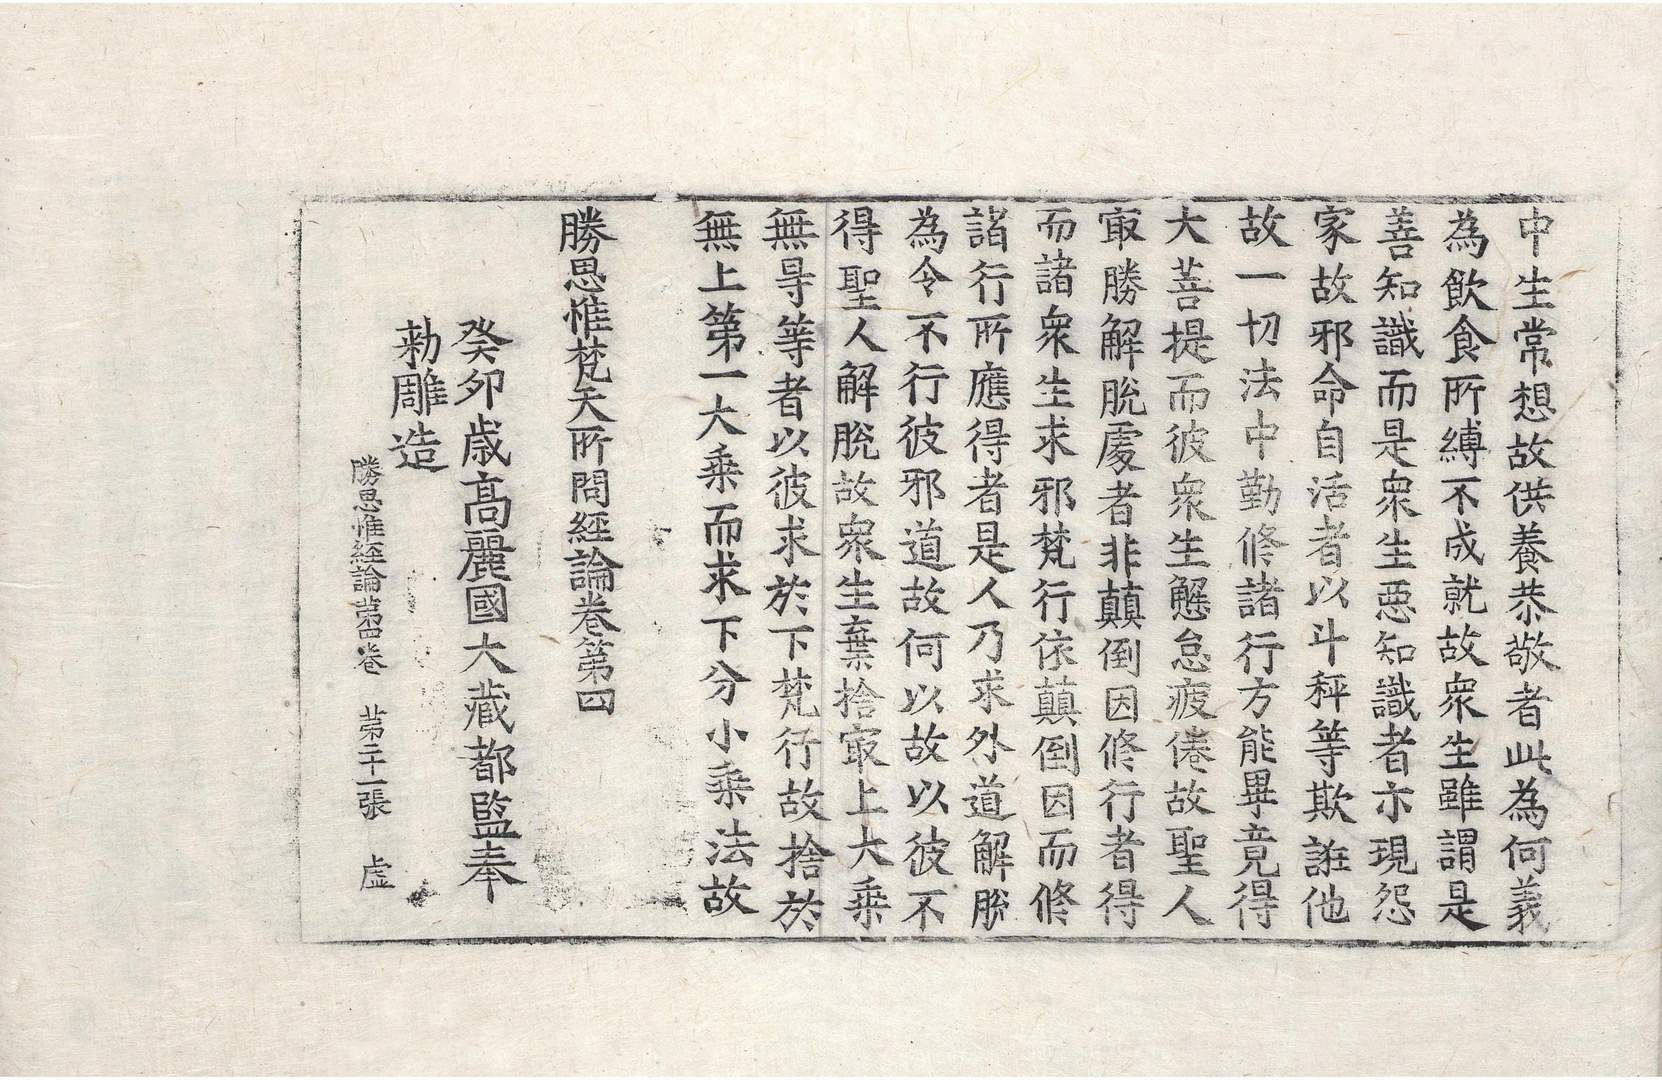 中生常想故供養恭敬者此為何義
為飲食所縛不成就故衆生雖謂是
善知識而是衆生惡知識者亦現怨
家故邪命自活者以斗秤等欺誑他
故一切法中勤修諸行方能畢竟得
大菩提而彼衆生懈怠疲倦故聖人
㝡勝解脫處者非顛倒因修行者得
而諸衆生求邪梵行依顛倒因而修
諸行所應得者是人乃求外道解脫
為令不行彼邪道故何以故以彼不
得聖人解脫故衆生棄捨㝡上大乘
無㝵等者以彼求於下梵行故捨於
無上第一大乘而求下分小乘法故
勝思惟梵天所問經論卷第四
癸卯歲高麗國大藏都監奉
勅雕造
勝思惟經論第四卷 第二十一張 虛